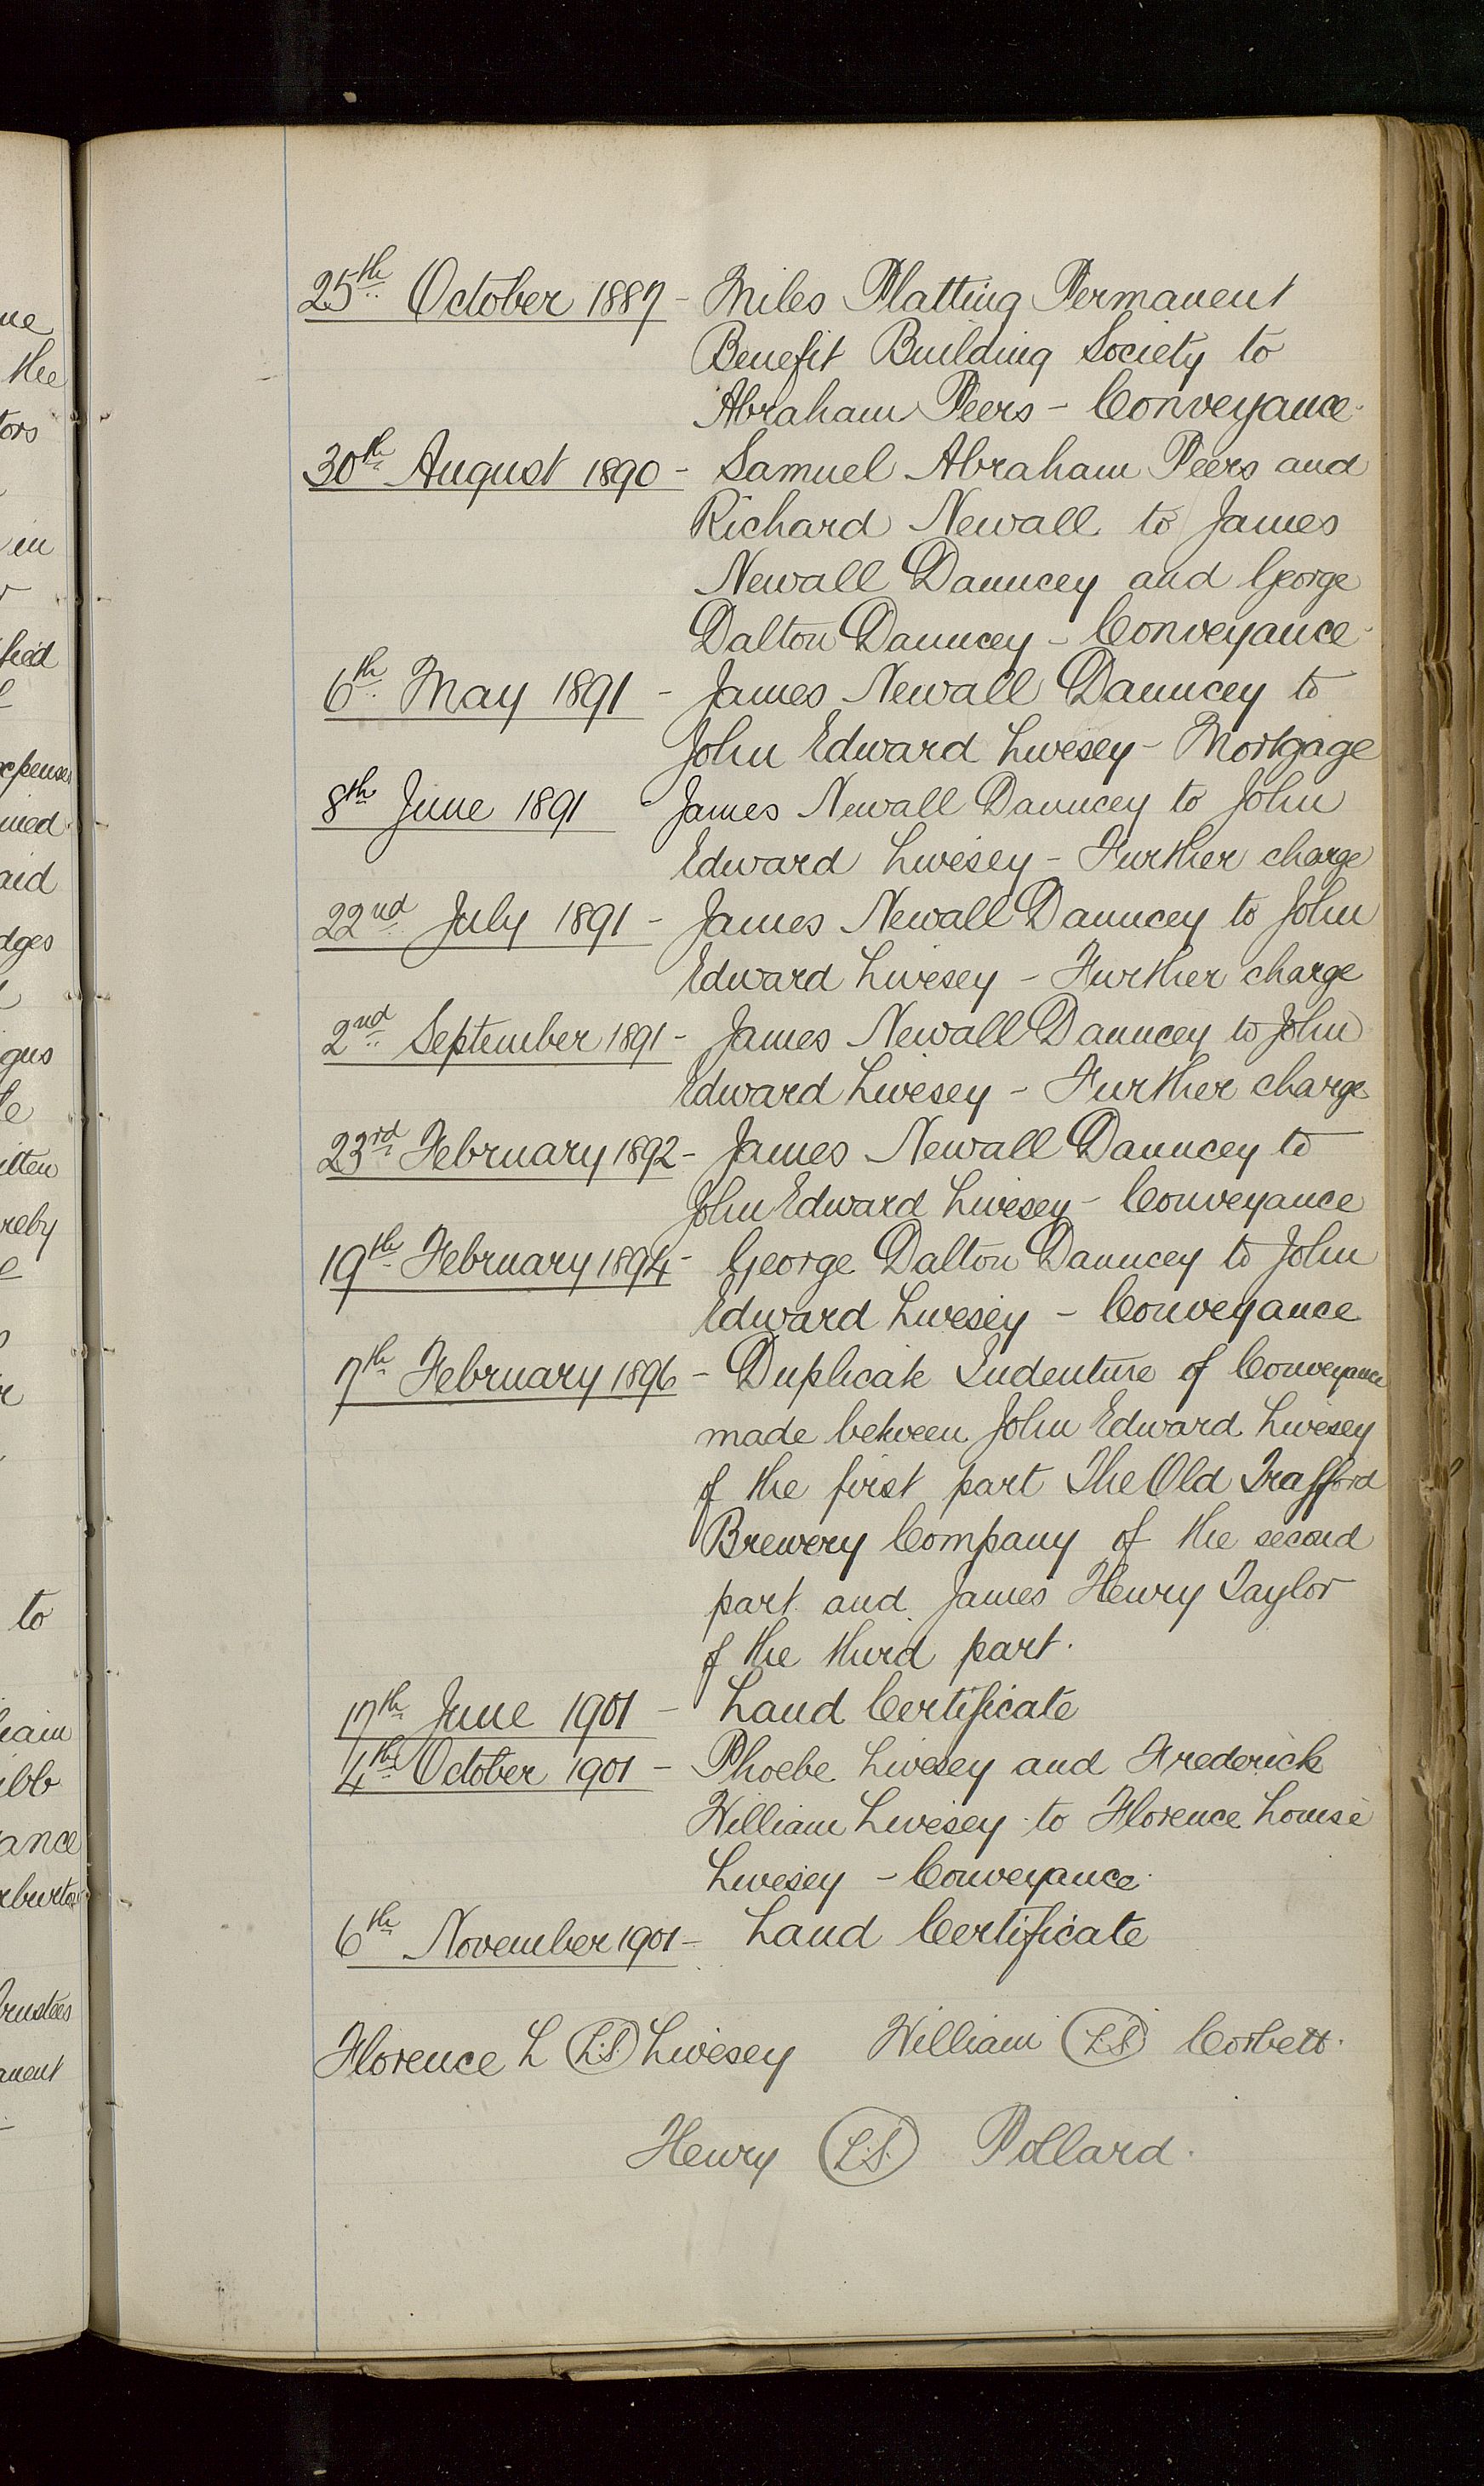 25th October 1887 - Miles Platting Permanent
Benefit Building Society to
Abraham Peers - Conveyance.
30th August 1890 - Samuel Abraham Peers and
Richard Newall to James
Newall Dauncey and George
Dalton Dauncey - Conveyance.
6th May 1891 - James Newall Dauncey to
John Edward Livesey - Mortgage
8th June 1891 - James Newall Dauncey to John
Edward Livesey - Further charge
22nd July 1891 - James Newall Dauncey to John
Edward Livesey - Further charge
2nd September 1891 - James Newall Dauncey to John
Edward Livesey - Further charge
23rd February 1892 - James Newall Dauncey to
John Edward Livesey - Conveyance
19th February 1894 - George Dalton Dauncey to John
Edward Livesey - Conveyance
7th February 1896 - Duplicate Indenture of Conveyance
made between John Edward Livesey
of the first part The Old Trafford
Brewery Company of the second
part and James Henry Taylor
of the third part.
17th June 1901 - Land Certificate
4th October 1901 - Phoebe Livesey and Frederick
William Livesey to Florence Louise
Livesey - Conveyance.
6th November 1901 - Land Certificate
Florence L (L.S.) Livesey William (L.S.) Corbett.
Henry (L.S.) Pollard.